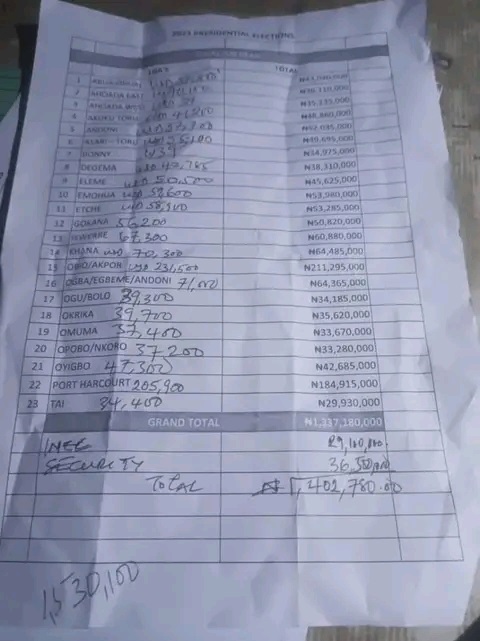 2023 PRESIDENTIAL ELECTIONS
LGA'S TOTAL
1
2 AHOADA EAST ₦36,110,000
3 AHOADA WEST ₦35,235,000
4 AKUKU TORU
5 ASARI
6 ₦40,695,000
7 BONNY ₦34,975,000
8 DEGEMA ₦38,310,000
9 ELEME USD 50,500 ₦45,625,000
10 EMOHUA USD 59,600 ₦53,980,000
11 ETCHE USD 58,900 ₦53,285,000
12 GOKANA 56,200 ₦50,820,000
13 IKWERRE 67,300 ₦60,880,000
14 KHANA USD 70,300 ₦64,485,000
15 OBIO/AKPOR USD 231,500 ₦211,295,000
16 OGBA/EGBEME/ANDONI 71,000 ₦64,365,000
17 OGU/BOLO 39,300 ₦34,185,000
18 OKRIKA 39,700 ₦35,620,000
19 OMUMA 37,400 ₦33,670,000
20 OPOBO/NKORO 37,200 ₦33,280,000
21 OYIGBO 47,300 ₦42,685,000
22 PORT HARCOURT 205,900 ₦184,915,000
23 TAI 34,400 ₦29,930,000
GRAND TOTAL ₦1,337,180,000
INEC 29,100,000.
SECURITY 36,500,000
TOTAL ₦1,402,780.00
1,530,100